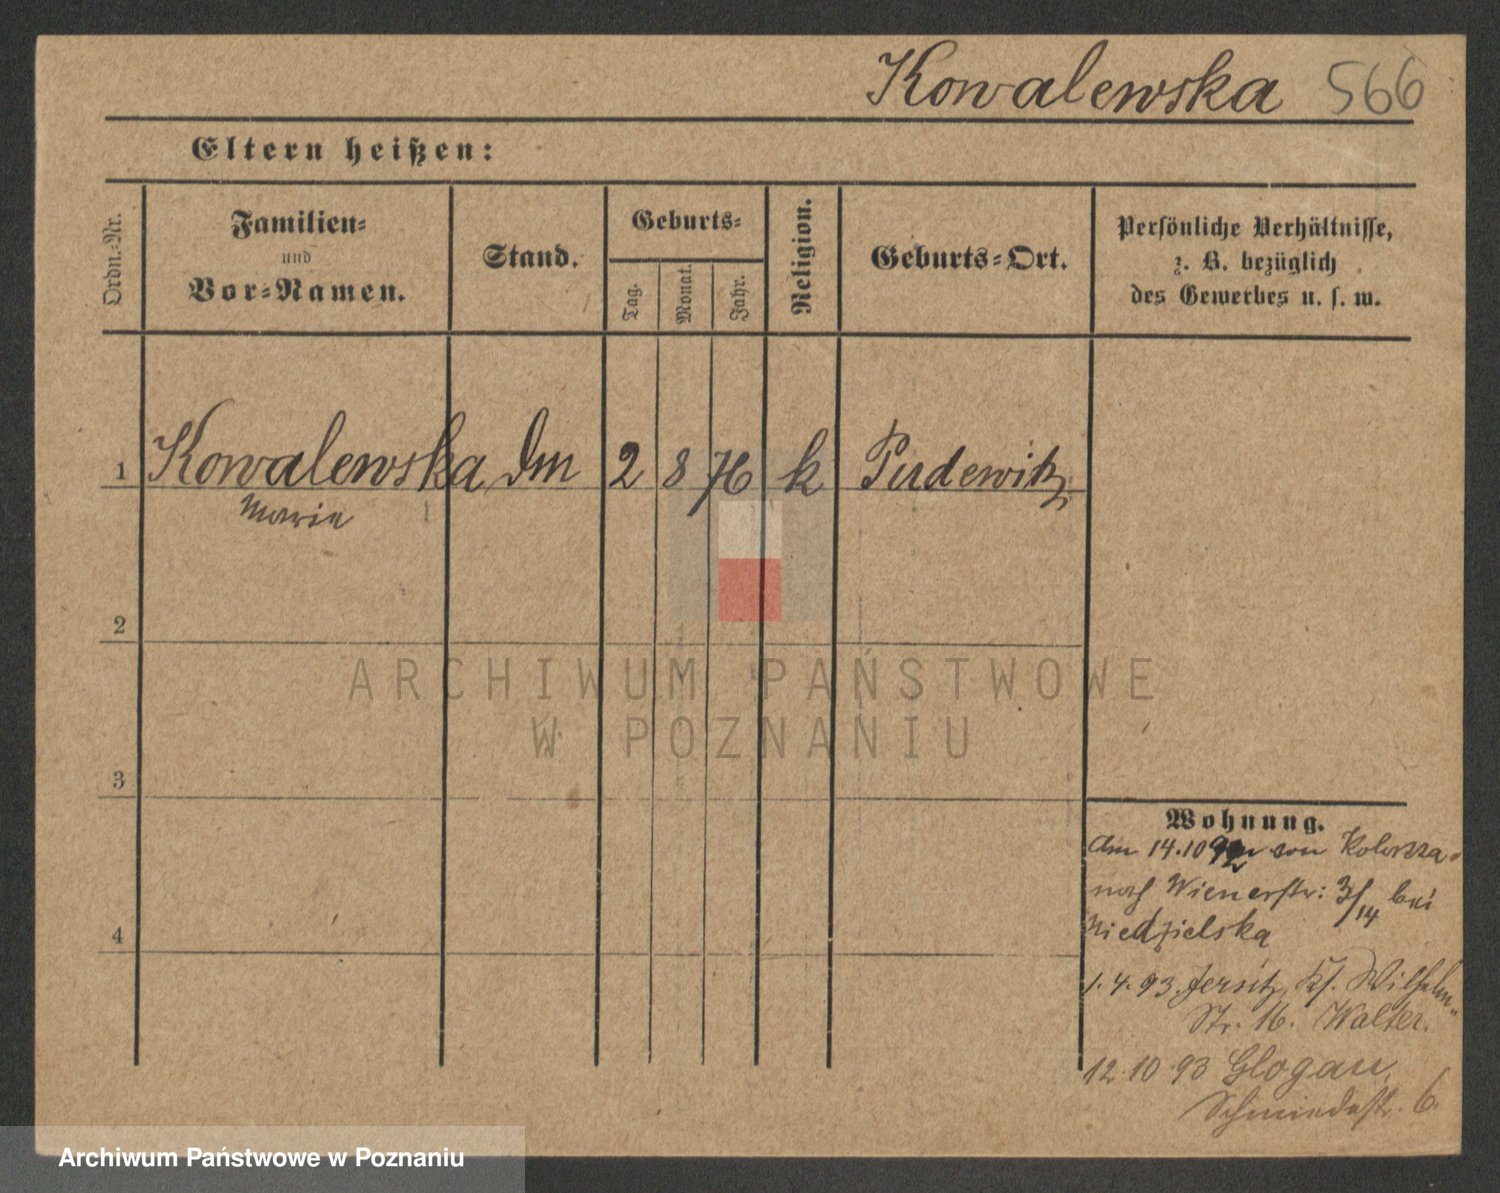 Kowalewska 566
Eltern heißen:
Ordn.-Nr.
Familien-
und
Vor-Namen.
Stand.
Geburts-
Tag.
Monat.
Jahr.
Religion.
Geburts-Ort.
Persönliche Verhältnisse,
z. B. bezüglich
des Gewerbes u. s. w.
1 Kowalewska Dm 2 8 76 k Pudewitz
Marie
2
3
4
Wohnung.
Am 14.10 92 von
nach Wienerstr: 3/14 bei
Niedzielska
1.4.93. Jersitz, Ks. Wilhelm-
Str. 16. Walter.
12.10.93 Glogau,
Schmiedestr. 6.
ARCHIWUM PAŃSTWOWE
W POZNANIU
Archiwum Państwowe w Poznaniu